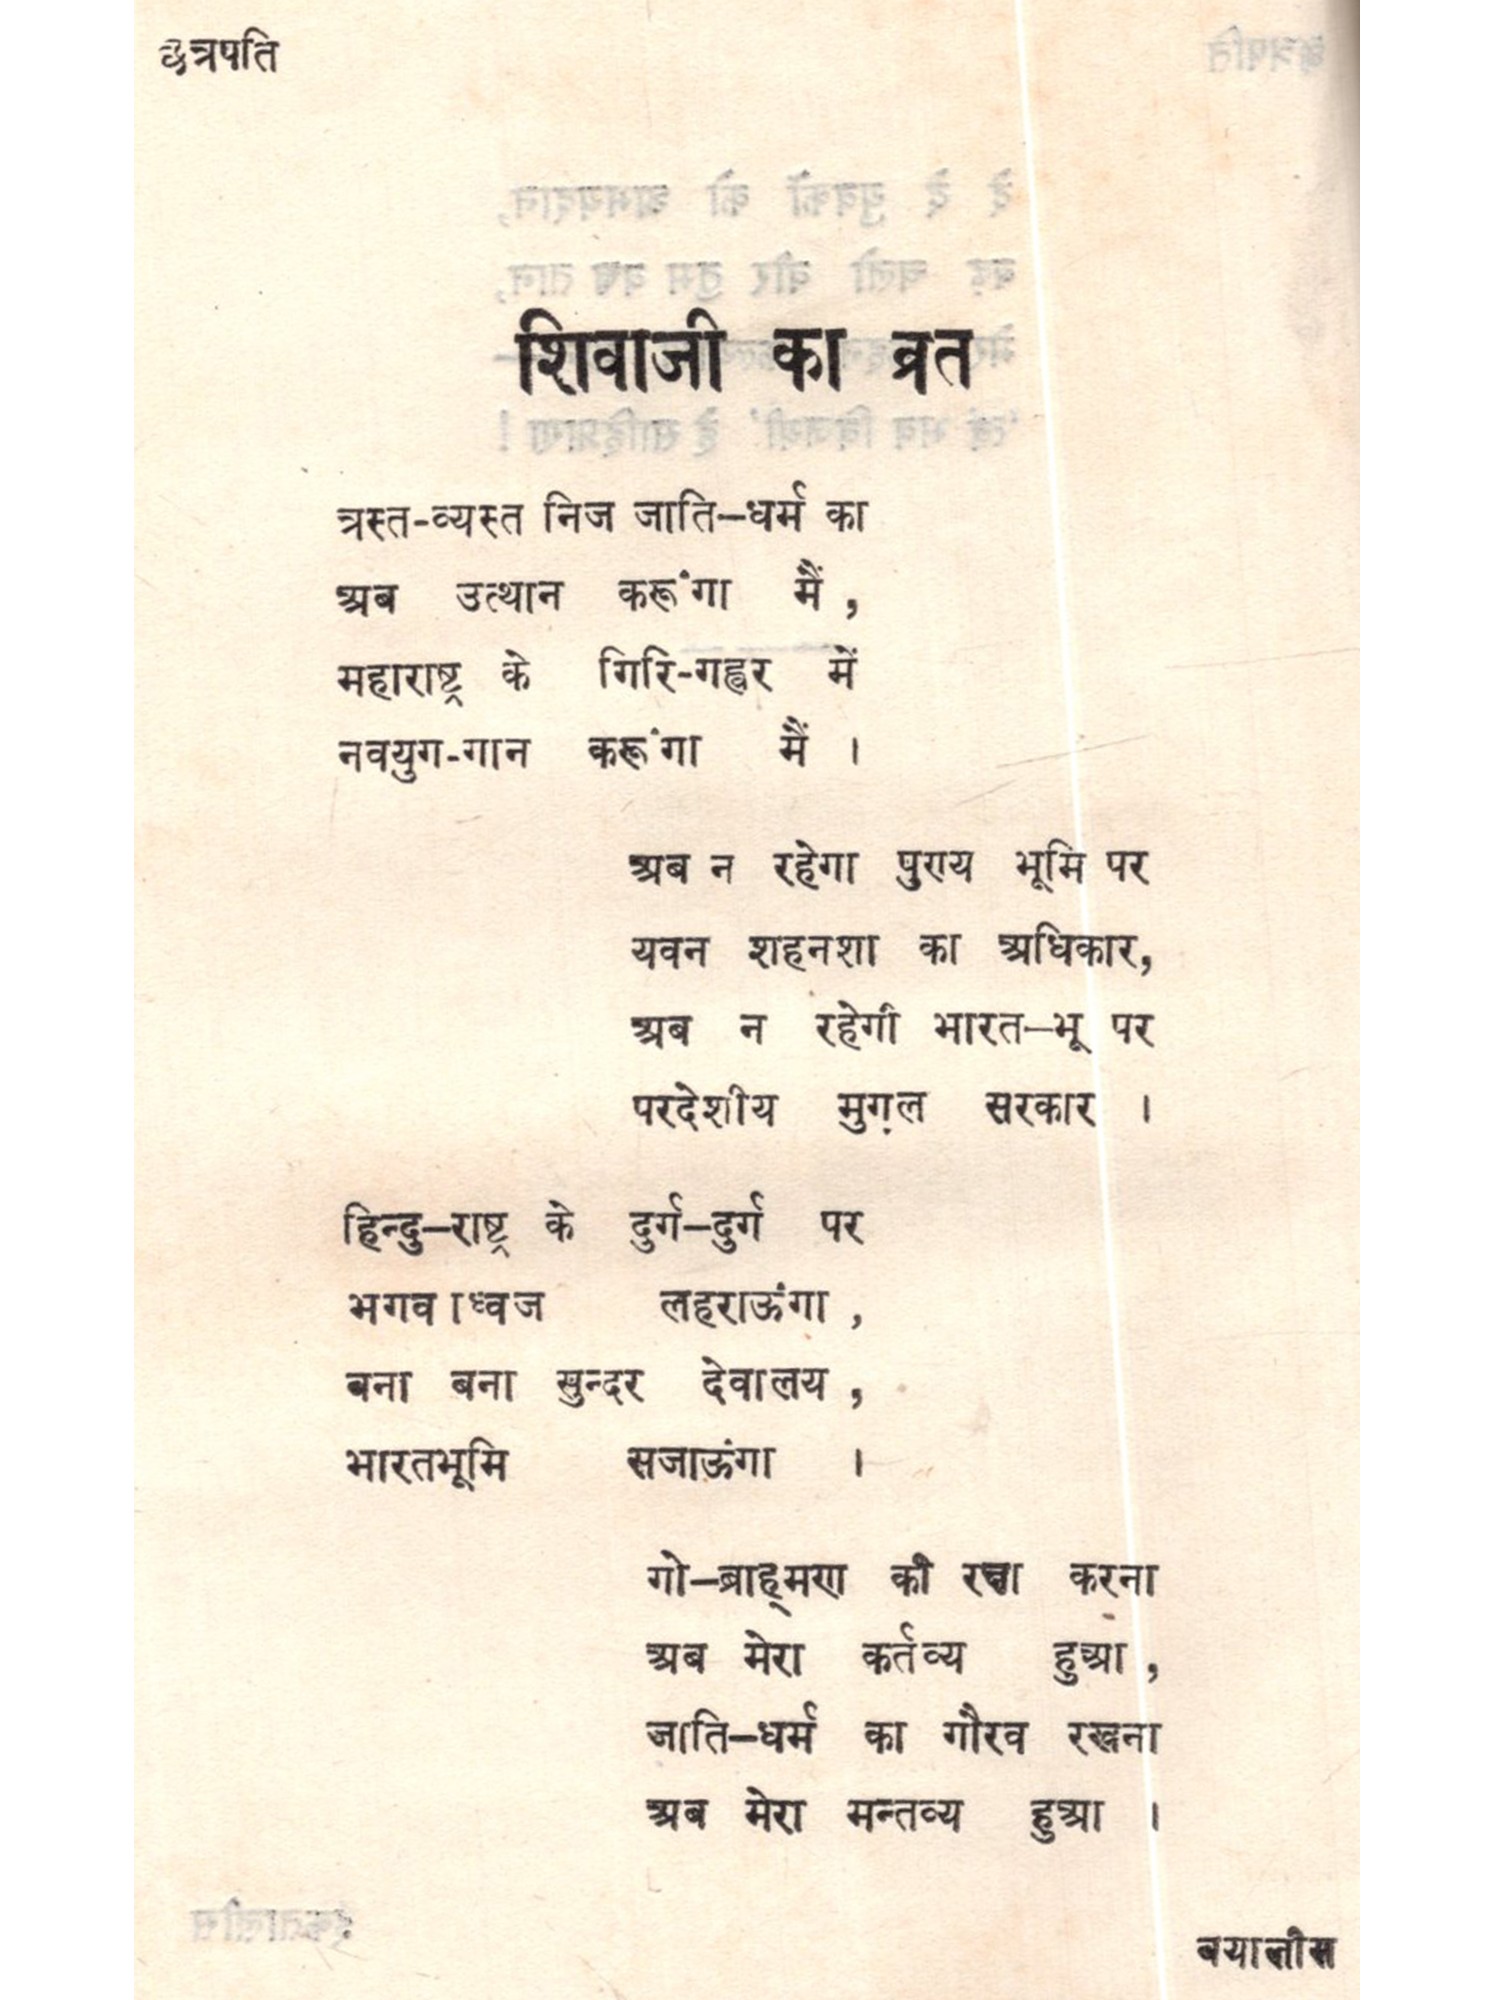 छत्रपति
शिवाजी का व्रत
त्रस्त-व्यस्त निज जाति–धर्म का
अब उत्थान करूंगा मैं,
महाराष्ट्र के गिरि-गह्वर में
नवयुग-गान करूंगा मैं ।
अब न रहेगा पुण्य भूमि पर
यवन शहनशा का अधिकार,
अब न रहेगी भारत–भू पर
परदेशीय मुग़ल सरकार ।
हिन्दु–राष्ट्र के दुर्ग–दुर्ग पर
भगवाध्वज लहराऊंगा,
बना बना सुन्दर देवालय,
भारतभूमि सजाऊंगा ।
गो–ब्राह्मण की रक्षा करना
अब मेरा कर्तव्य हुआ,
जाति–धर्म का गौरव रखना
अब मेरा मन्तव्य हुआ ।
बयालीस